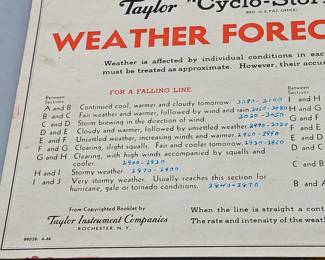 Taylor "Cyclo-Stor
REG. U.S. PAT. OFFICE
WEATHER FOREC
Weather is affected by individual conditions in eac
must be treated as approximate. However, their accur
FOR A FALLING LINE
Between
Sections
A and B Continued cool, warmer and cloudy tomorrow. 3080-3100
B and C Fair weather and warmer, followed by wind and rain. 3050-3080
C and D Storm brewing in the direction of wind. 3020-3050
D and E Cloudy and warmer, followed by unsettled weather. 2990-3020
E and F Unsettled weather, increasing winds and warmer. 2960-2990
F and G Clearing, slight squalls. Fair and cooler tomorrow. 2930-2960
G and H Clearing, with high winds accompanied by squalls and
cooler. 2900-2930
H and I Stormy weather. 2870-2900
I and J Very stormy weather. Usually reaches this section for
hurricane, gale or tornado conditions. 2840-2870
Between
Sections
I and H
H and G
G and F
F and E
E and D
D and C
C and B
B and A
From Copyrighted Booklet by
Taylor Instrument Companies
ROCHESTER, N. Y.
99038 4-46
When the line is straight a cont
The rate and intensity of the weath